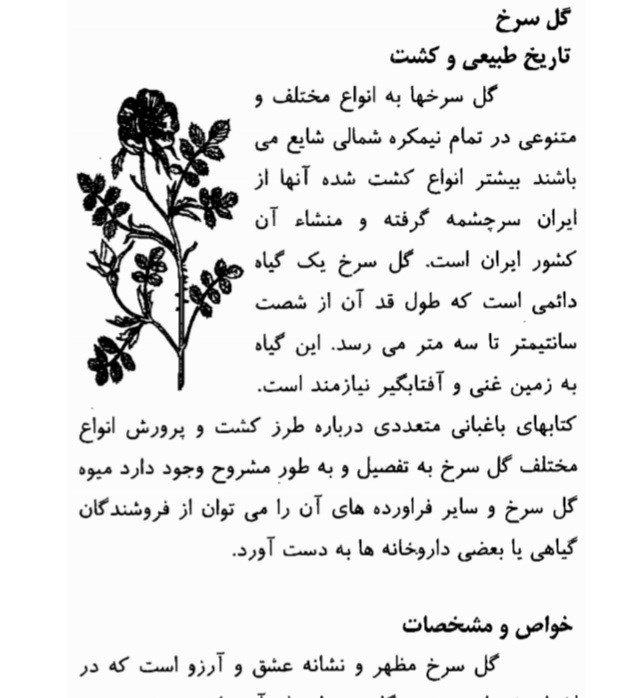 گل سرخ
تاریخ طبیعی و کشت
گل سرخها به انواع مختلف و
متنوعی در تمام نیمکره شمالی شایع می
باشند بیشتر انواع کشت شده آنها از
ایران سرچشمه گرفته و منشاء آن
کشور ایران است. گل سرخ یک گیاه
دائمی است که طول قد آن از شصت
سانتیمتر تا سه متر می رسد. این گیاه
به زمین غنی و آفتابگیر نیازمند است.
کتابهای باغبانی متعددی درباره طرز کشت و پرورش انواع
مختلف گل سرخ به تفصیل و به طور مشروح وجود دارد میوه
گل سرخ و سایر فراورده های آن را می توان از فروشندگان
گیاهی یا بعضی داروخانه ها به دست آورد.
خواص و مشخصات
گل سرخ مظهر و نشانه عشق و آرزو است که در